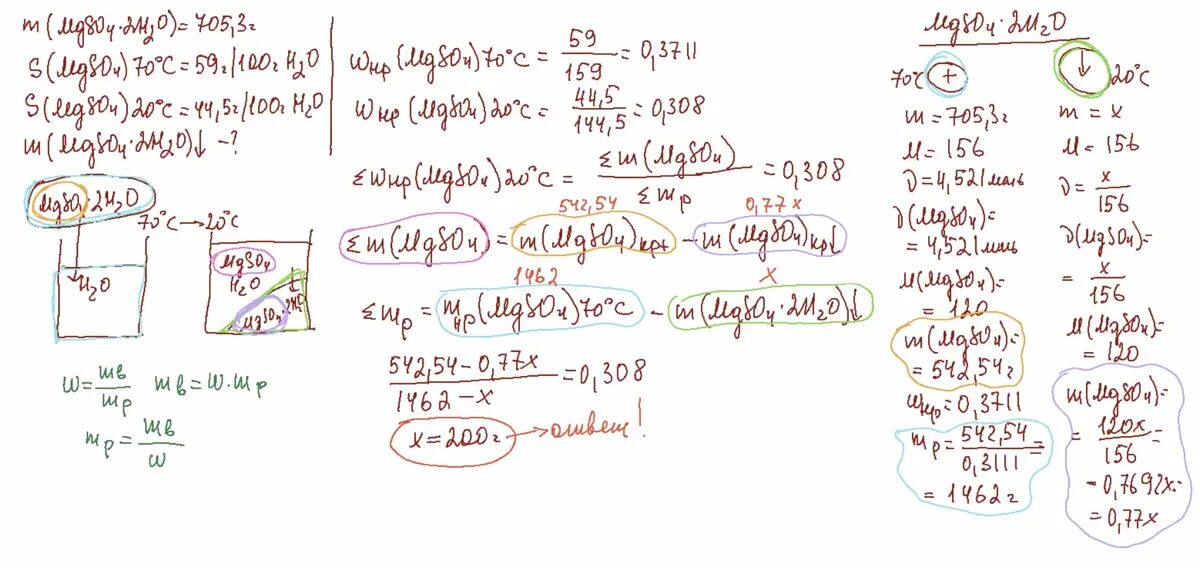 m(MgSO4·2H2O)=705,3г
S(MgSO4)70°C=59г/100г H2O
S(MgSO4)20°C=44,5г/100г H2O
m(MgSO4·2H2O)↓ -?
MgSO4·2H2O
70°C→20°C
H2O
MgSO4
H2O
MgSO4·2H2O
ω=mв/mр mв=ω·mр
mр=mв/ω
ωнр(MgSO4)70°C=59/159=0,3711
ωнр(MgSO4)20°C=44,5/144,5=0,308
Σωнр(MgSO4)20°C=Σm(MgSO4)/Σmр=0,308
542,54 0,77x
Σm(MgSO4)=m(MgSO4)кр+ - m(MgSO4)кр↓
1462 x
Σmр=mнр(MgSO4)70°C - m(MgSO4·2H2O)↓
542,54-0,77x/1462-x=0,308
x=200г → ответ!
MgSO4·2H2O
70°C +
m=705,3г
M=156
ν=4,521моль
ν(MgSO4)=
=4,521моль
M(MgSO4)=
=120
m(MgSO4)=
=542,54г
ωнр=0,3711
mр=542,54/0,3111=
=1462г
↓ 20°C
m=x
M=156
ν=x/156
ν(MgSO4)=
=x/156
M(MgSO4)=
=120
m(MgSO4)=
=120x/156=
=0,7692x=
=0,77x